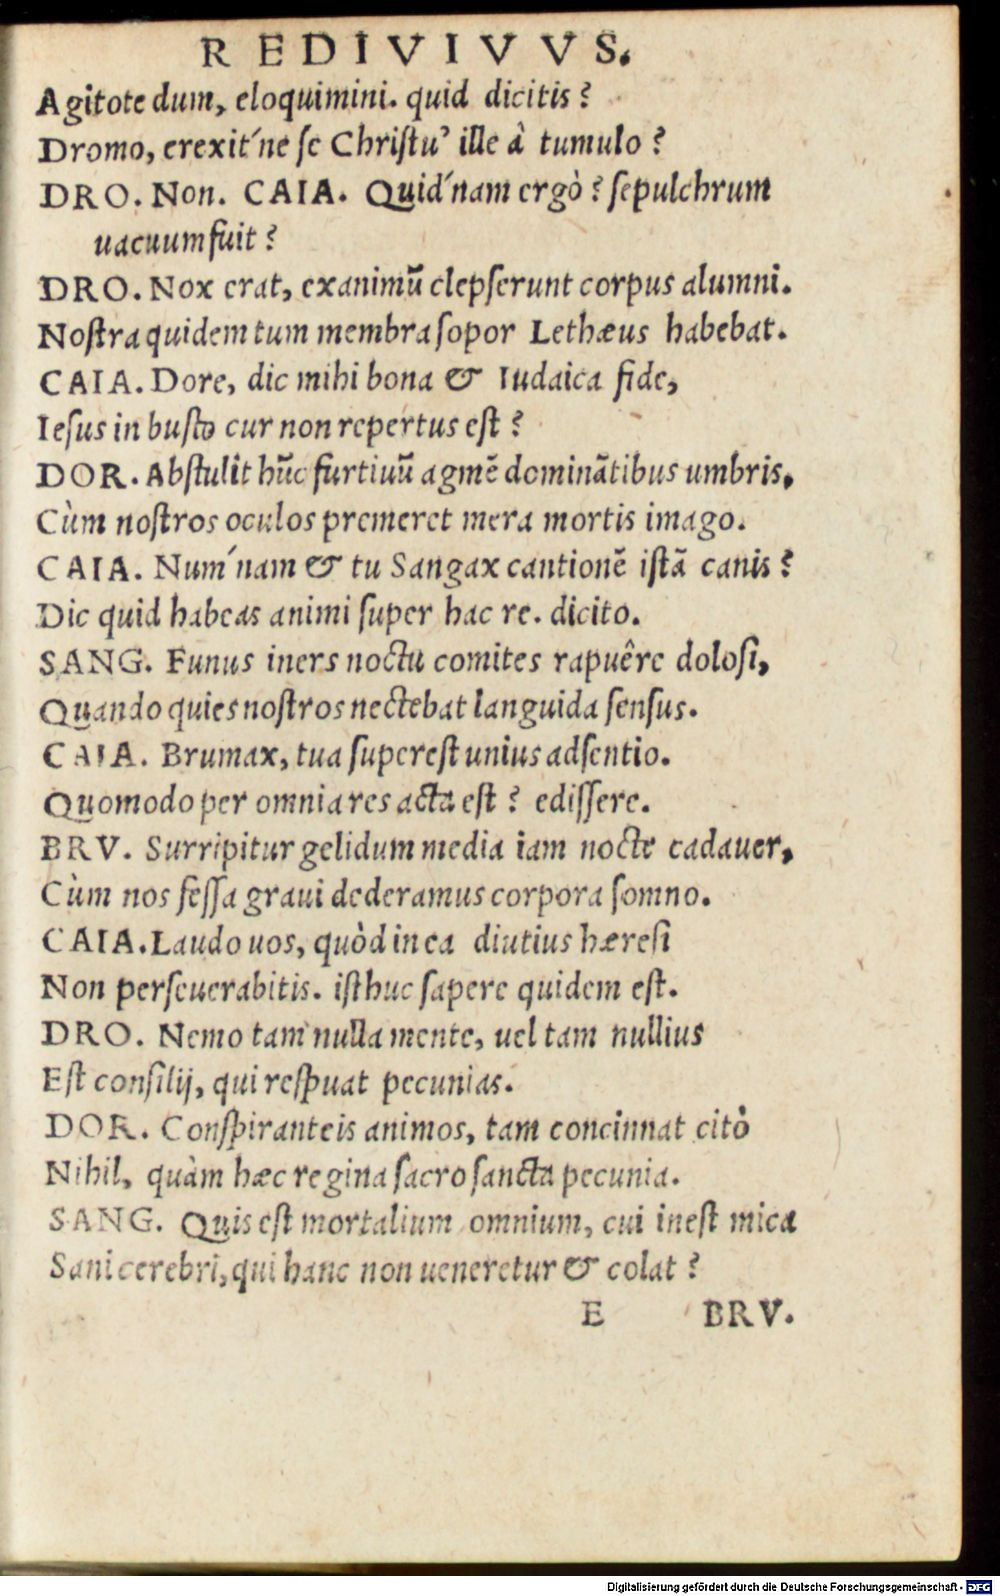 REDIVIVVS.
Agitote dum, eloquimini. quid dicitis?
Dromo, erexit´ne se Christu’ ille à tumulo?
DRO. Non. CAIA. Quid´nam ergò? sepulchrum
uacuum fuit?
DRO. Nox erat, exanimū clepserunt corpus alumni.
Nostra quidem tum membra sopor Lethæus habebat.
CAIA. Dore, dic mihi bona & Iudaica fide,
Iesus in busto cur non repertus est?
DOR. Abstulit hūc furtiuū agmē dominātibus umbris,
Cùm nostros oculos premeret mera mortis imago.
CAIA. Num´nam & tu Sangax cantionē istā canis?
Dic quid habeas animi super hac re. dicito.
SANG. Funus iners noctu comites rapuêre dolosi,
Quando quies nostros nectebat languida sensus.
CAIA. Brumax, tua superest unius adsentio.
Quomodo per omnia res acta est? edissere.
BRV. Surripitur gelidum media iam nocte cadauer,
Cùm nos fessa graui dederamus corpora somno.
CAIA. Laudo uos, quòd in ea diutius hæresi
Non perseuerabitis. isthuc sapere quidem est.
DRO. Nemo tam nulla mente, uel tam nullius
Est consilij, qui respuat pecunias.
DOR. Conspiranteis animos, tam concinnat citò
Nihil, quàm hæc regina sacrosancta pecunia.
SANG. Quis est mortalium omnium, cui inest mica
Sani cerebri, qui hanc non ueneretur & colat?
E BRV.
Digitalisierung gefördert durch die Deutsche Forschungsgemeinschaft - DFG